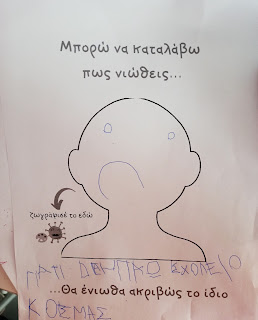 Μπορώ να καταλάβω
πως νιώθεις...
ζωγράφισέ το εδώ
ΓΙΑΤΙ ΔΕΝ ΠΑΩ ΣΧΟΛΕΙΟ
...Θα ένιωθα ακριβώς το ίδιο
ΚΟΣΜΑΣ